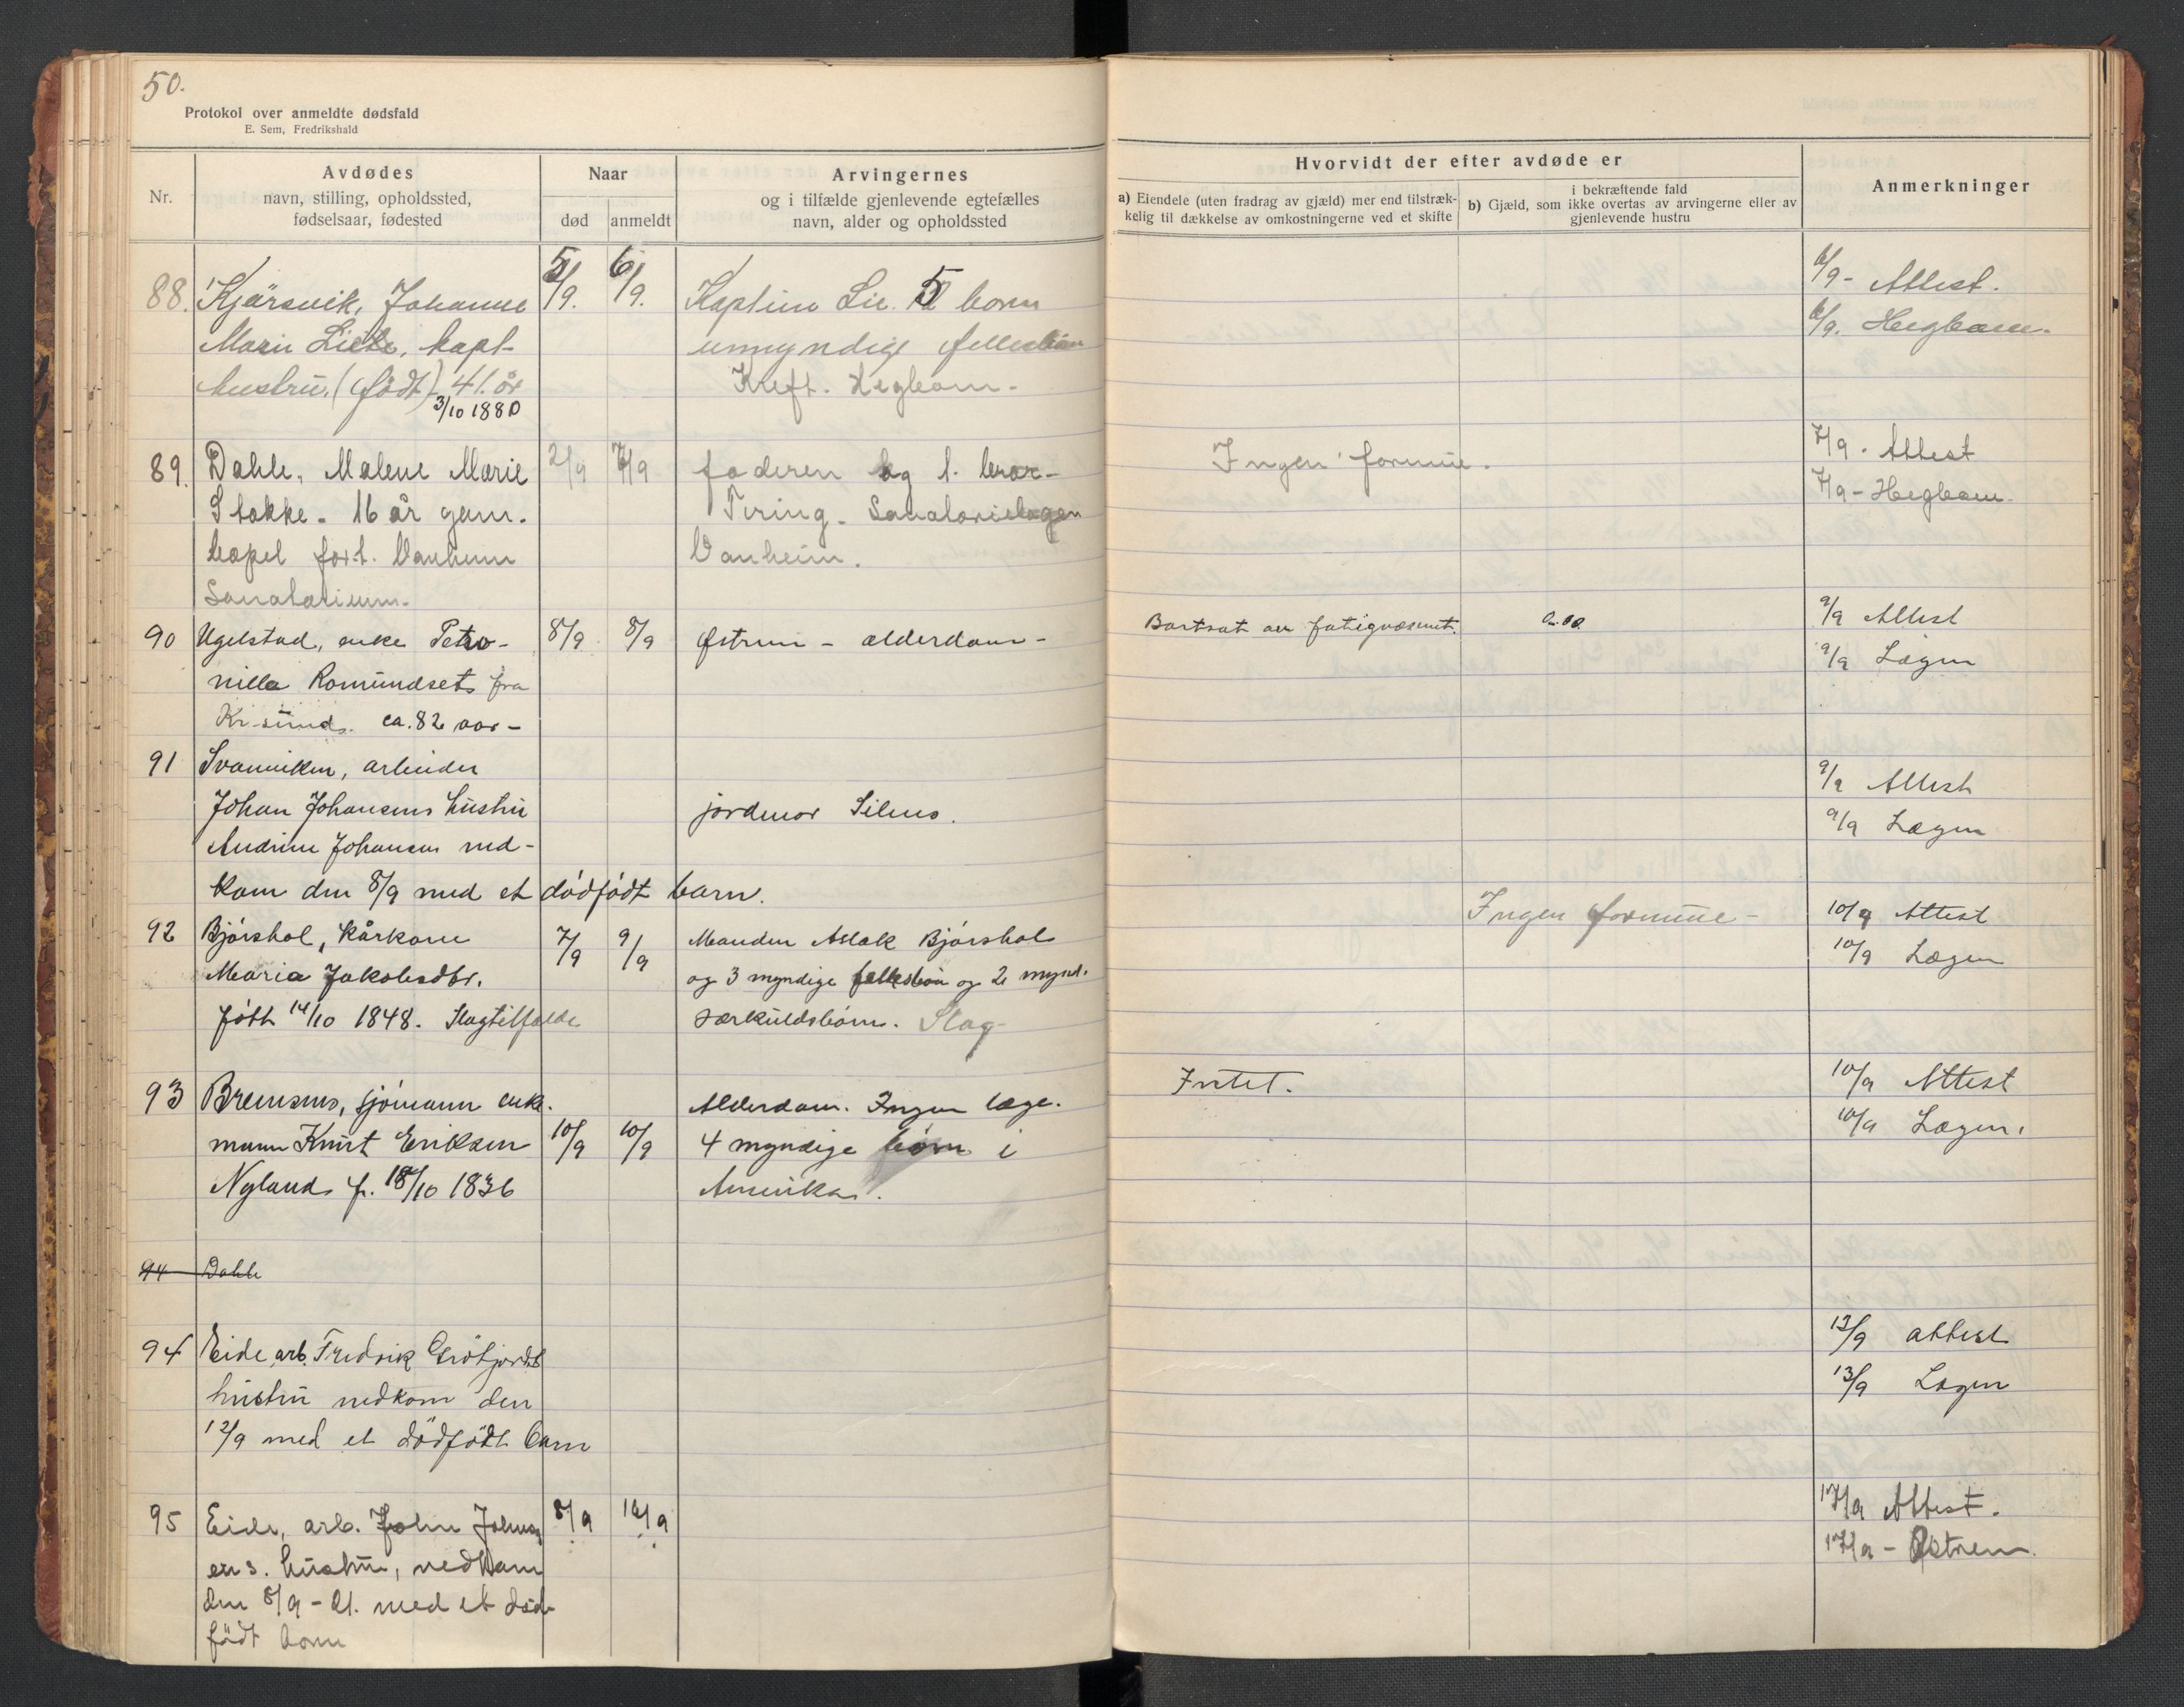 50.
Protokol over anmeldte dødsfald
E. Sem, Fredrikshald
Nr.
Avdødes
navn, stilling, opholdssted,
fødselsaar, fødested
Naar
død
anmeldt
Arvingernes
og i tilfælde gjenlevende egtefælles
navn, alder og opholdssted
Hvorvidt der efter avdøde er
a) Eiendele (uten fradrag av gjæld) mer end tilstræk-
kelig til dækkelse av omkostningerne ved et skifte
i bekræftende fald
b) Gjæld, som ikke overtas av arvingerne eller av
gjenlevende hustru
Anmerkninger
88. Kjärsvik, Johanne 5/9. 6/9. Kaptein Lie. 5 barn 6/9 - Attest.
Marie Lie, kapt umyndige fellesbörn 6/9. Hegbom.
hustru. (födt) 41. år Kreft. Hegbom.
3/10 1880
89. Dahle, Malene Marie 2/9 7/9 faderen og 1. bror - Ingen formue. 7/9. Attest
Stokke. 16 år gam. Tæring. Sanatorielægen 7/9 - Hegbom.
kapel fort. Vanheim Vanheim.
Sanatorium.
90 Ugelstad, enke Petro- 8/9 8/9 Østrem - alderdom - Bortsat av fatigvæsenet. 9/9 Attest
nille Romundset fra 9/9 Lægen
Kr-sund. ca. 82 aar -
91 Svanviken, arbeider 9/9 Attest
Johan Johansens hustru jordmor Silnes. 9/9 Lægen
Andrine Johansen ned-
kom den 8/9 med et dödfödt barn.
92 Bjórshol, kårkone 7/9 9/9 Manden Aslak Bjórshol Ingen formue - 10/9 Attest
Maria Jakobsdtr. og 3 myndige fellesbörn og 2 mynd. 10/9 Lægen
født 14/10 1848. Slagtilfælde særkuldsbórn. Slag
93 Bremsnes, sjómann enke. Alderdom. Ingen læge. Intet. 10/9 Attest
mann Knut Eriksen 10/9 10/9 4 myndige bórn i 10/9 Lægen.
Nyland f. 18/10 1836 Amerika.
94 Dahle
94 Eide arb. Fredrik 13/9 attest
hustru nedkom den 13/9 Lægen
12/9 med et dödfödt barn
95 Eide, arb. John Johns 8/9 17/9 Attest.
ens. hustru, nedkom 17/9 - Østrem.
den 8/9 - 21. med et död
födt barn